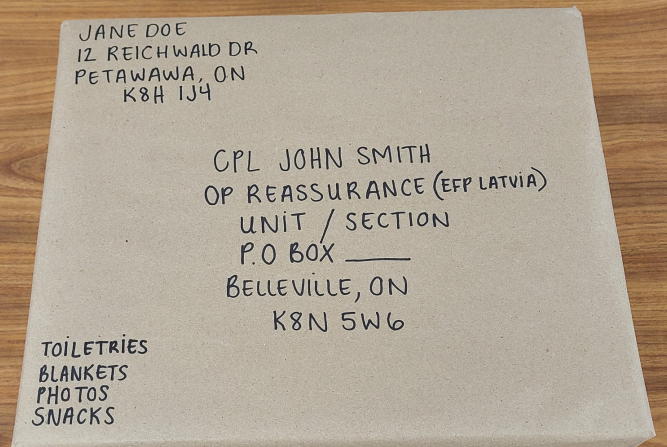 JANE DOE
12 REICHWALD DR
PETAWAWA, ON
K8H 1J4
CPL JOHN SMITH
OP REASSURANCE (EFP LATViA)
UNiT / SECTION
P.O BOX ____
BELLEVILLE, ON
K8N 5W6
TOiLETRiES
BLANKETS
PHOTOS
SNACKS